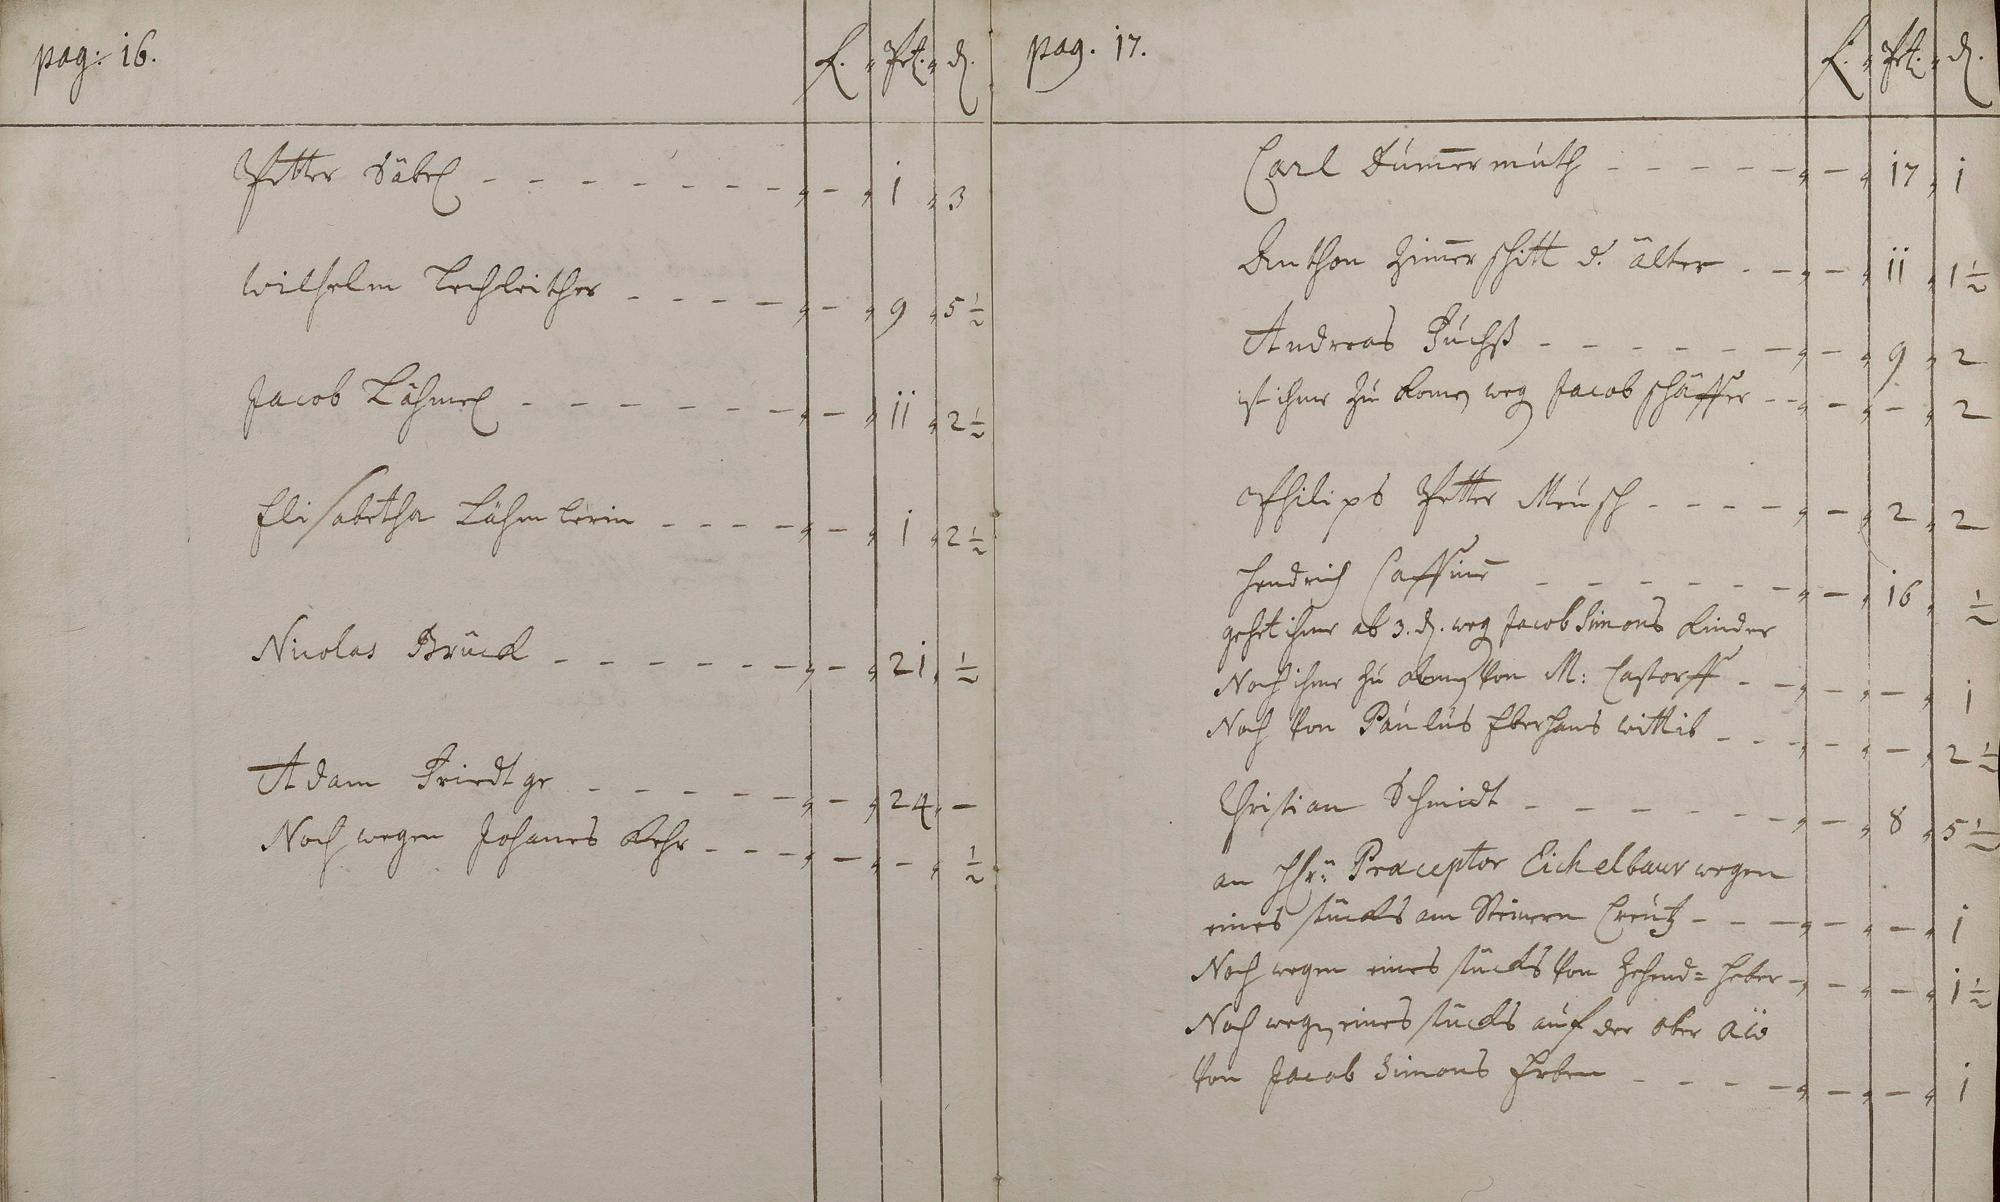 pag: 16. f. Pet. d.
Petter Säbel - - - - - - - - " - " 1 " 3
Wilhelm Lechleither - - - - " - " 9 " 5 1/2
Jacob Lähmel - - - - - - " - " 11 " 2 1/2
Elisabetha Lähmlerin - - - - " - " 1 " 2 1/2
Nicolas Brück - - - - - - " - " 21 " 1/2
Adam Friedtge - - - - - " - " 24 " -
Noch wegen Johanes Kehr - - - " - " - " 1/2
pag. 17. f. " d.
Carl Dum̄ermuth - - - - - " - " 17 " 1
Anthon Zim̄erschitt d. älter - - " - " 11 " 1 1/2
Andreas Fuchß - - - - - - " - " 9 " 2
ist ihme zu komen weg Jacob schäffer - - " - " - " 2
Philips Petter Meusch - - - - " - " 2 " 2
Hendrich - - - - - " - " 16 " 1/2
gehet ihme ab 3. d. weg Jacob Simons Kinder
Noch ihme zu von M: Castorff - - " - " - " 1
Noch von Paulus Eberhans wittib - - - " - " - " 2 1/2
Christian Schmidt - - - - - - " - " 8 " 5 1/2
an H: Praeceptor Eichelbaur wegen
eines stücks am Steinern Creutz - - - " - " - " 1
Noch wegen eines stücks von Zehend=heber - " - " - " 1 1/2
Noch wegen eines stücks auf der ober
von Jacob Simons Erben - - - - " - " - " 1